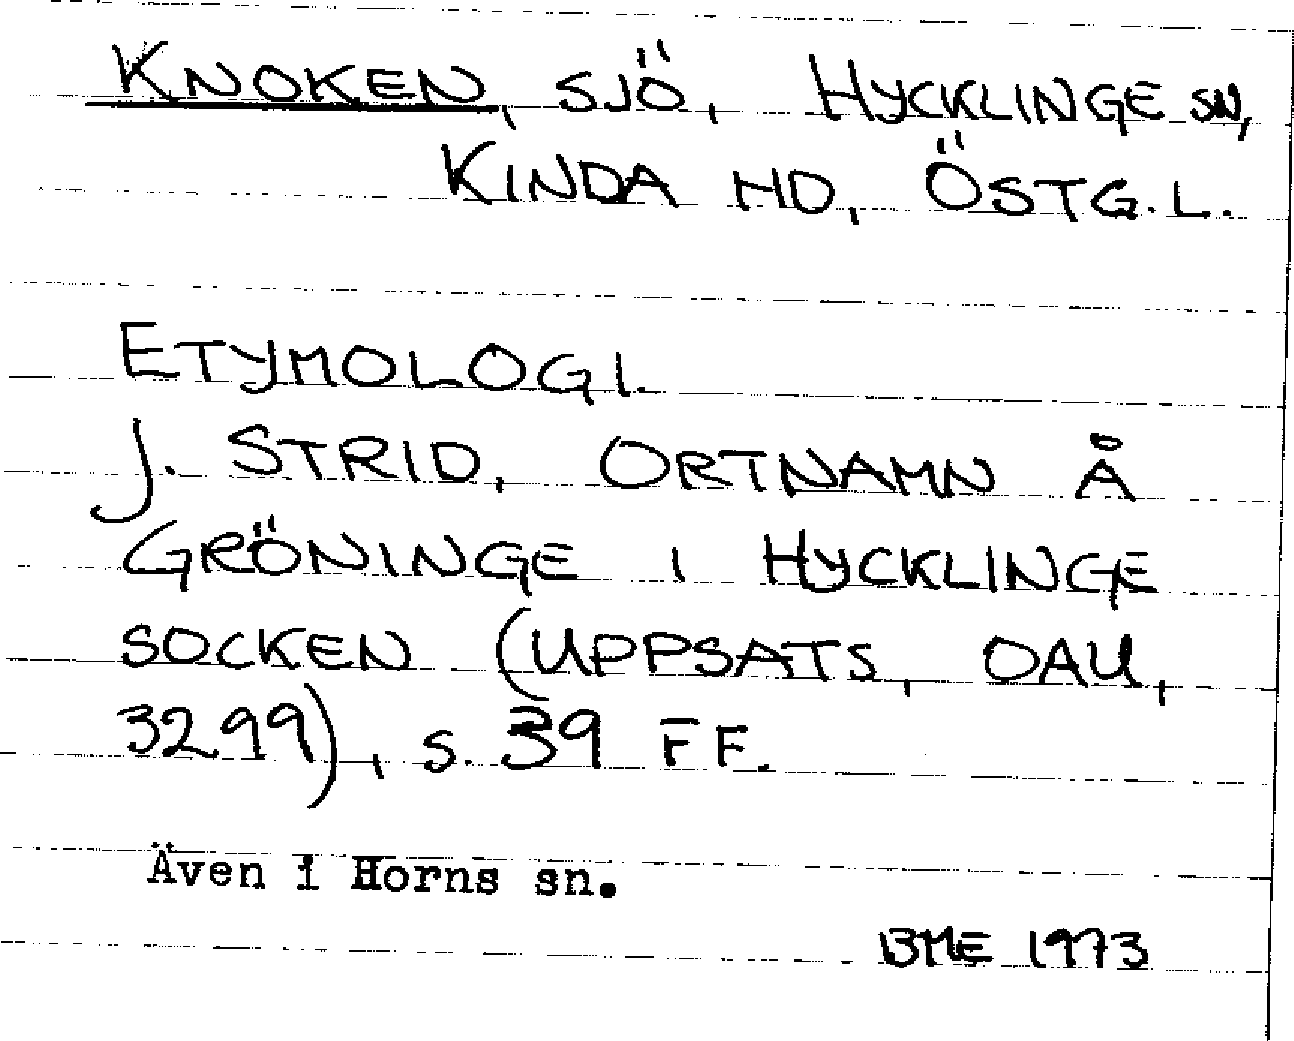 KNOKEN, SJÖ, HYCKLINGE SN,
KINDA HD, ÖSTG.L.
ETYMOLOGI.
J. STRID, ORTNAMN Å
GRÖNINGE I HYCKLINGE
SOCKEN (UPPSATS, OAU,
3299), S. 39 FF.
Även i Horns sn.
BME 1973